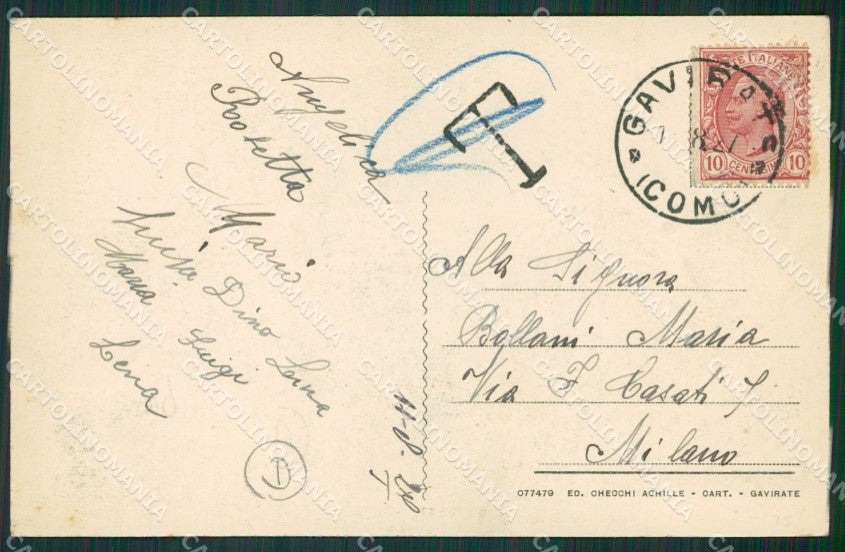 Angelica
Rosetta
Mario
Luisa Dino Lena
Maria Luigi
Lena
T
GAVIRATE
(COMO)
POSTE ITALIANE
10 CENTESIMI 10
Alla Signora
Bollani Maria
Via F Casati 7
Milano
077479 ED. CHECCHI ACHILLE - CART. - GAVIRATE
CARTOLINOMANIA